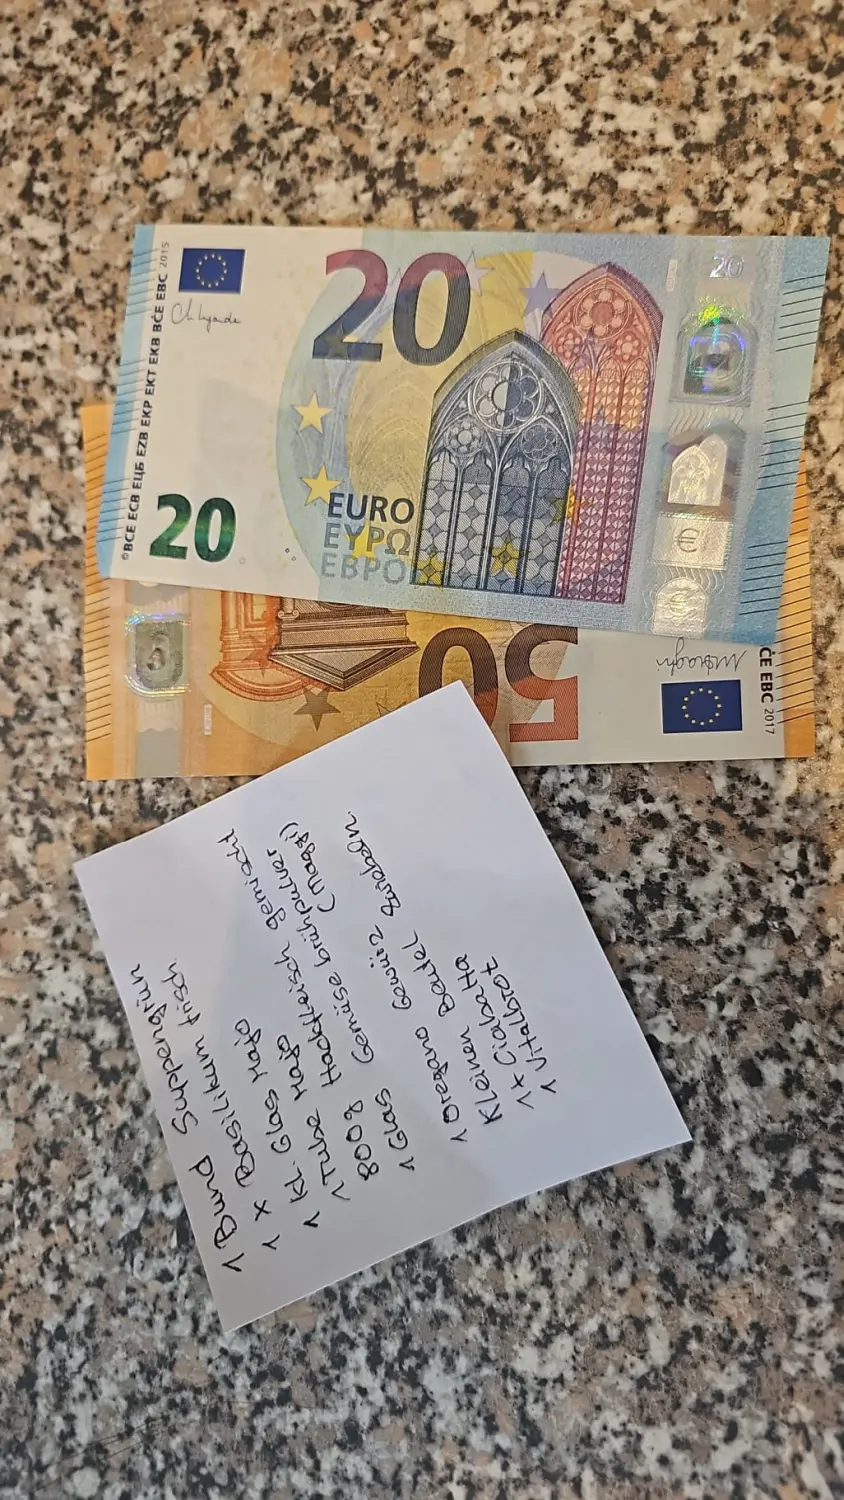 ©BCE ECB ЕЦБ EZB EKP EKT EKB BĊE EBC 2015
20
20
20
EURO
ΕΥΡΩ
ЕВРО
€
50
ĊE EBC 2017
1 Bund Suppengrün
1 x Basilikum frisch.
1 Kl. Glas Majo
1 Tube Majo
800g Hackfleisch gemischt
1 Glas Gemüse brühpulver
(Maggi)
1 Oregano Gewürz
Kleinen Beutel Zwiebeln.
1 x Ciabatta
1 Vitalbrot